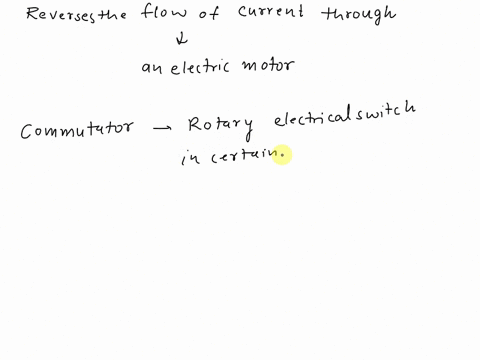 Reverses the flow of current through
↓
an electric motor
Commutator → Rotary electrical switch
in certain.